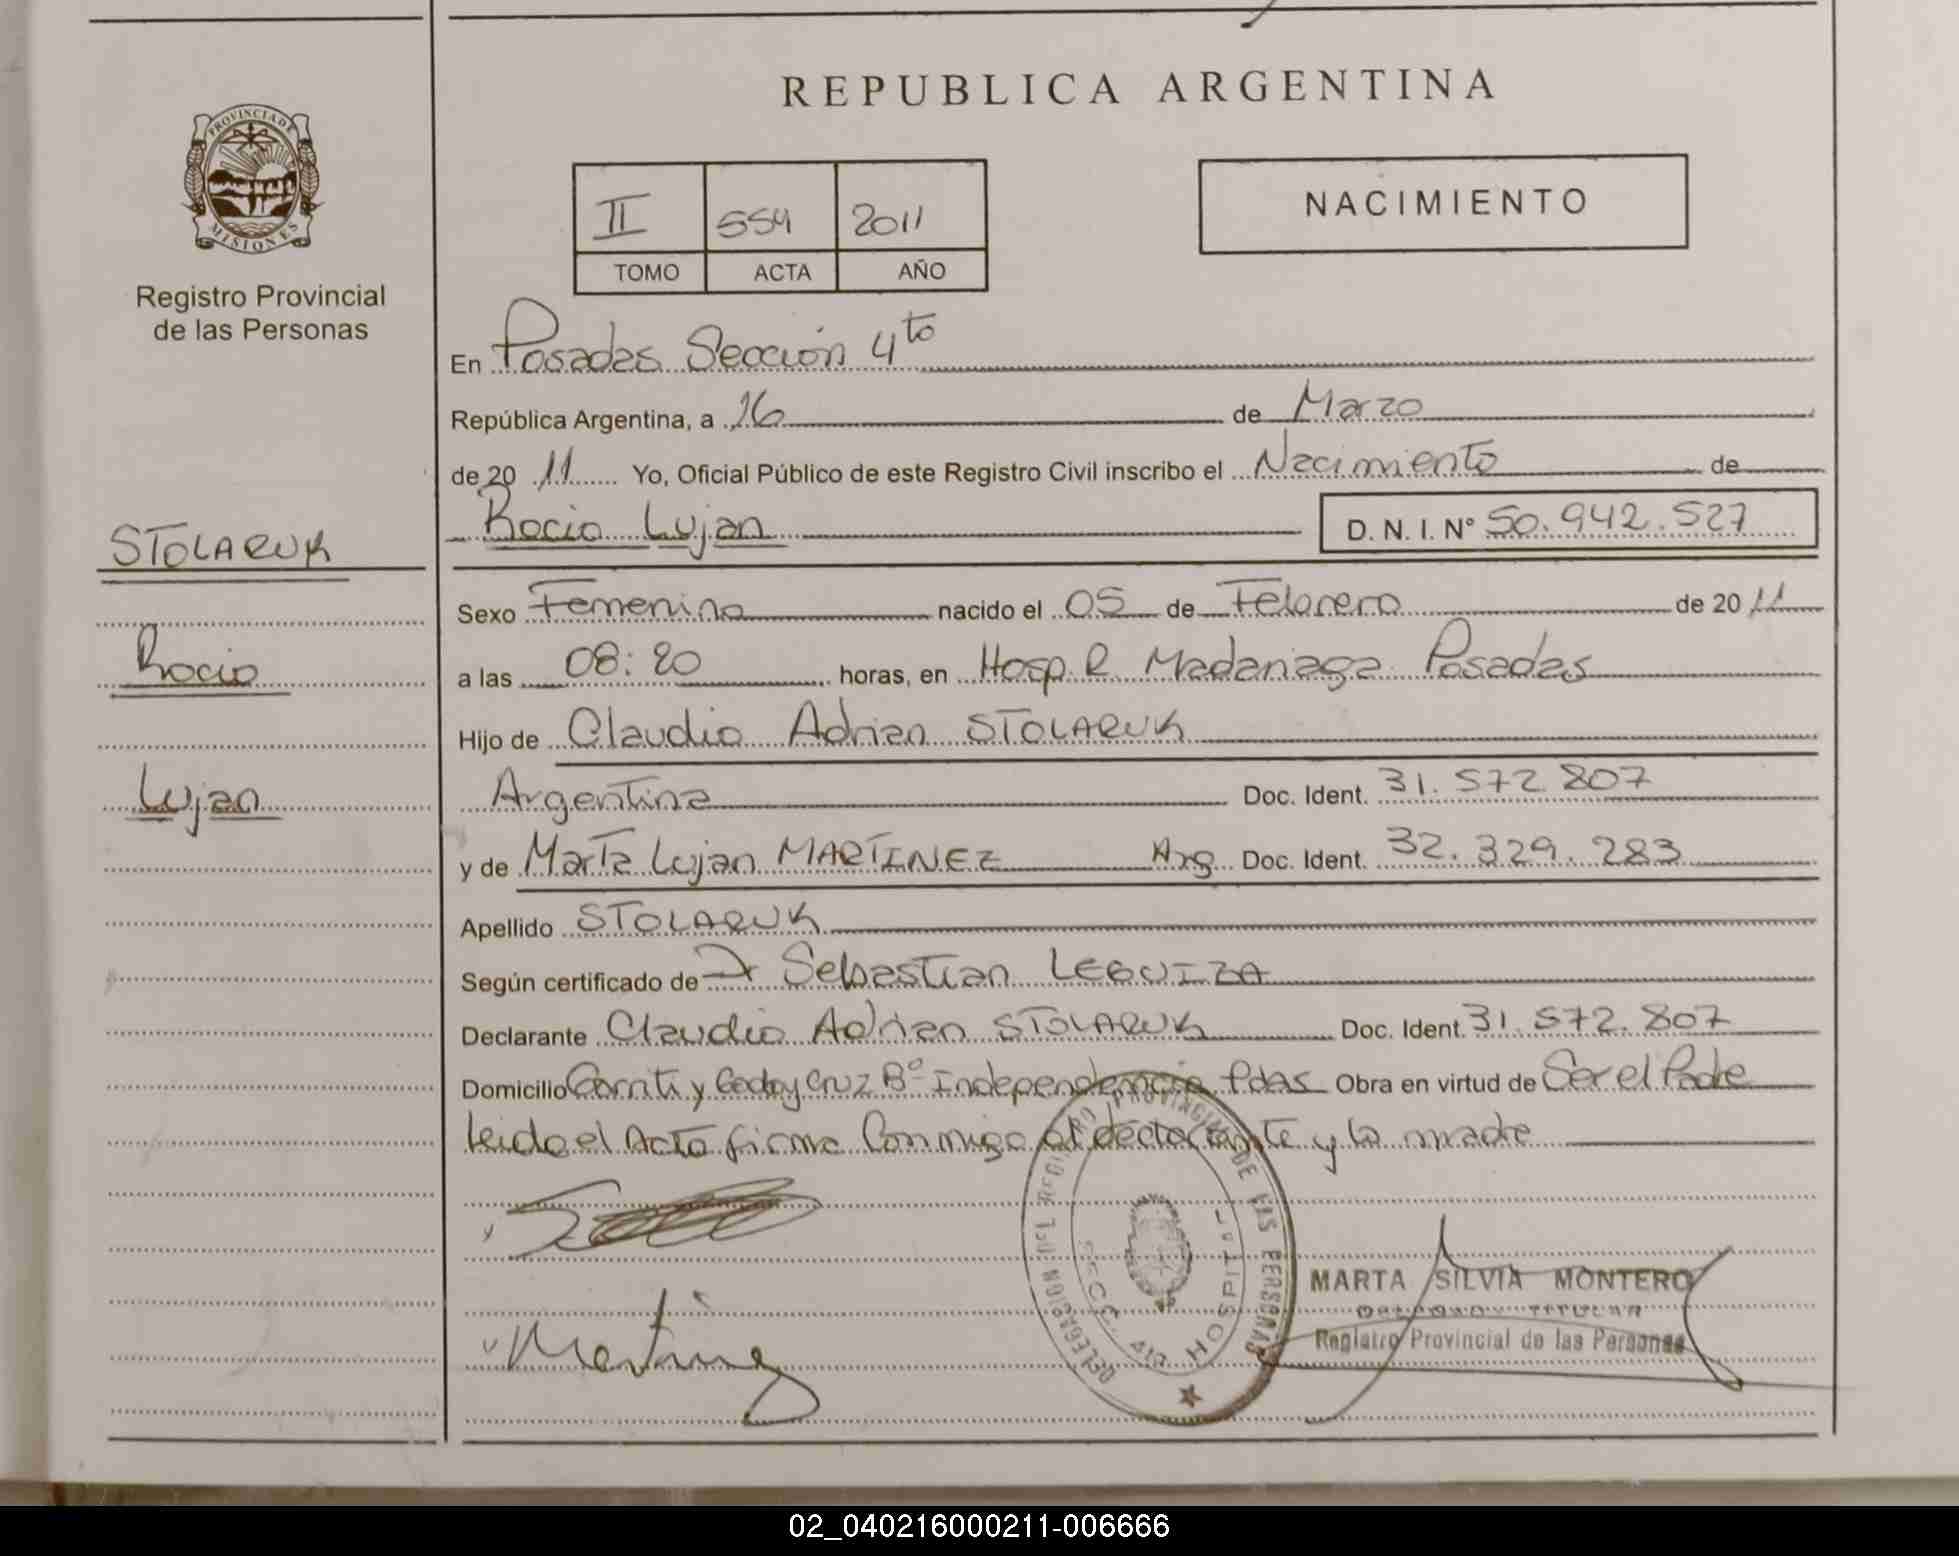 REPUBLICA ARGENTINA
PROVINCIA DE MISIONES
Registro Provincial
de las Personas
II 554 2011
TOMO ACTA AÑO
NACIMIENTO
En Posadas Sección 4to
República Argentina, a 16 de Marzo
de 20 11 Yo, Oficial Público de este Registro Civil inscribo el Nacimiento de
Rocio Lujan D. N. I. Nº 50.942.527
STOLARUK
Rocio
Lujan
Sexo Femenino nacido el 05 de Febrero de 20 11
a las 08:20 horas, en Hosp. R Madariaga Posadas
Hijo de Claudio Adrian STOLARUK
Argentina Doc. Ident. 31.572.807
y de Marta Lujan MARTINEZ Arg. Doc. Ident. 32.329.283
Apellido STOLARUK
Según certificado de Dr Sebastian LEGUIZA
Declarante Claudio Adrian STOLARUK Doc. Ident. 31.572.807
Domicilio Gorriti y Godoy Cruz Bº Independencia Pdas Obra en virtud de Ser el Padre
Leido el Acta firma Conmigo el declarante y la madre
DELEGACION DEL REGISTRO PROVINCIAL DE LAS PERSONAS
SECC. 4ta HOSPITAL
MARTA SILVIA MONTERO
DELEGADA TITULAR
Registro Provincial de las Personas
Martinez
02_040216000211-006666